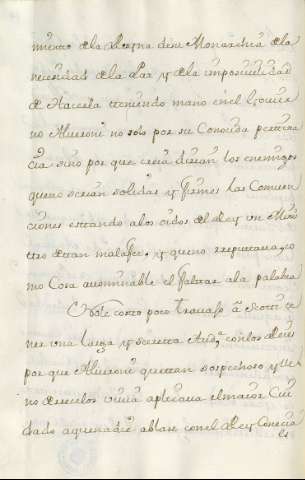 miento de la Reyna de su Monarchia de la
necesidad de la Paz y de la imposivilidad
de Hacerla teniendo mano en el Govier
no Alveroni no solo por su Conocida
cia sino por que creia dirian los enemigos
que no serian solidas y firmes las Conven
ciones estando a los oidos del Rey un Minis
tro de tan mala fee, y que no
mo Cosa abominable el faltar a la palabra
Costo poco travajo à Scotti te
ner una larga y secreta Aud.ª con los Reyes
por que Alveroni que era tan sospechoso y lle
no de recelos vivia aplicava el maior Cui
dado a que nadie ablase con el Rey Conocia